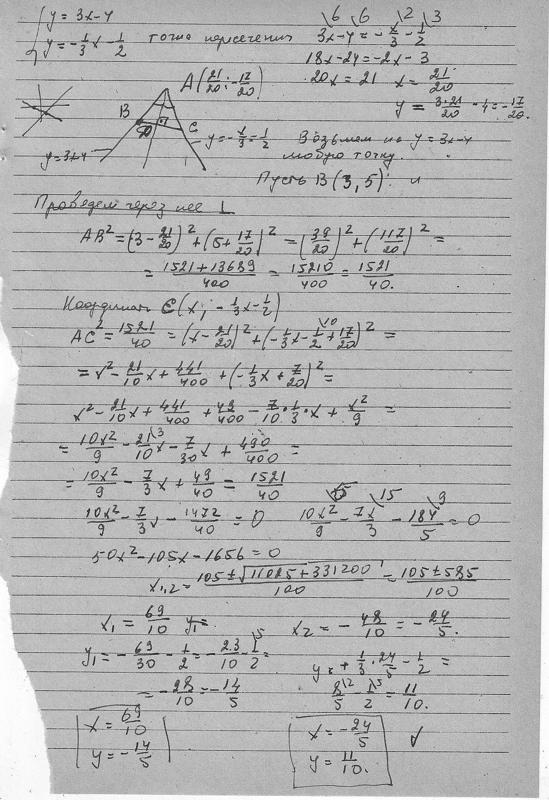 y = 3x-4
y = -1/3 x - 1/2 точка пересечения 3x-4 = -x/3 - 1/2
6 6 2 3
18x-24=-2x-3
A(21/20; -17/20) 20x = 21 x = 21/20
y = 3·21/20 - 4 = -17/20.
B
C
y=3x-4
y=-x/3=1/2
Возьмем на y=3x-4
любую точку.
Пусть B(3,5) и
Проведем через нее L
AB²=(3-21/20)²+(5+17/20)²=(39/20)²+(117/20)²=
= 1521+13689/400 = 15210/400 = 1521/40.
Координаты C(x; -1/3x-1/2)
AC²=1521/40 = (x-21/20)²+(-1/3x-1/2+17/20)² =
= x²-21/10x+441/400+(-1/3x+7/20)²=
x²-21/10x+441/400+49/400-7/10·1/3·x+x²/9 =
= 10x²/9-21/10x-7/30x+490/400=
= 10x²/9-7/3x+49/40=1521/40
10x²/9-7/3x-1472/40=0 10x²/9-7x/3-184/5=0
50x²-105x-1656=0
x1,2=105±√11025+331200/100=105±585/100
x1=69/10 y1= x2=-48/10=-24/5.
y1=-69/30-1/2=-23/10-1/2= y2=+1/3·24/5-1/2=
=-28/10=-14/5 8/5-1/2=11/10.
x=69/10 x=-24/5
y=-14/5 y=11/10.